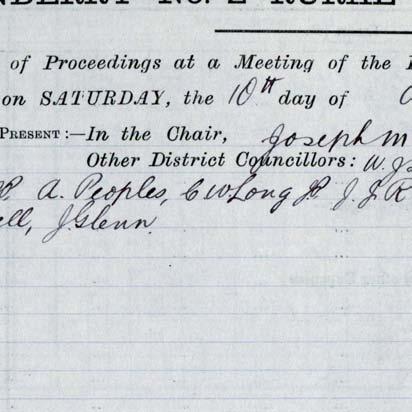 NDERRY No. 2 RURAL
of Proceedings at a Meeting of the
on SATURDAY, the 10th day of
PRESENT:—In the Chair, Joseph M
Other District Councillors: W. J.
A. Peoples, C W Long JP. J. J. R
ell, J. Glenn.